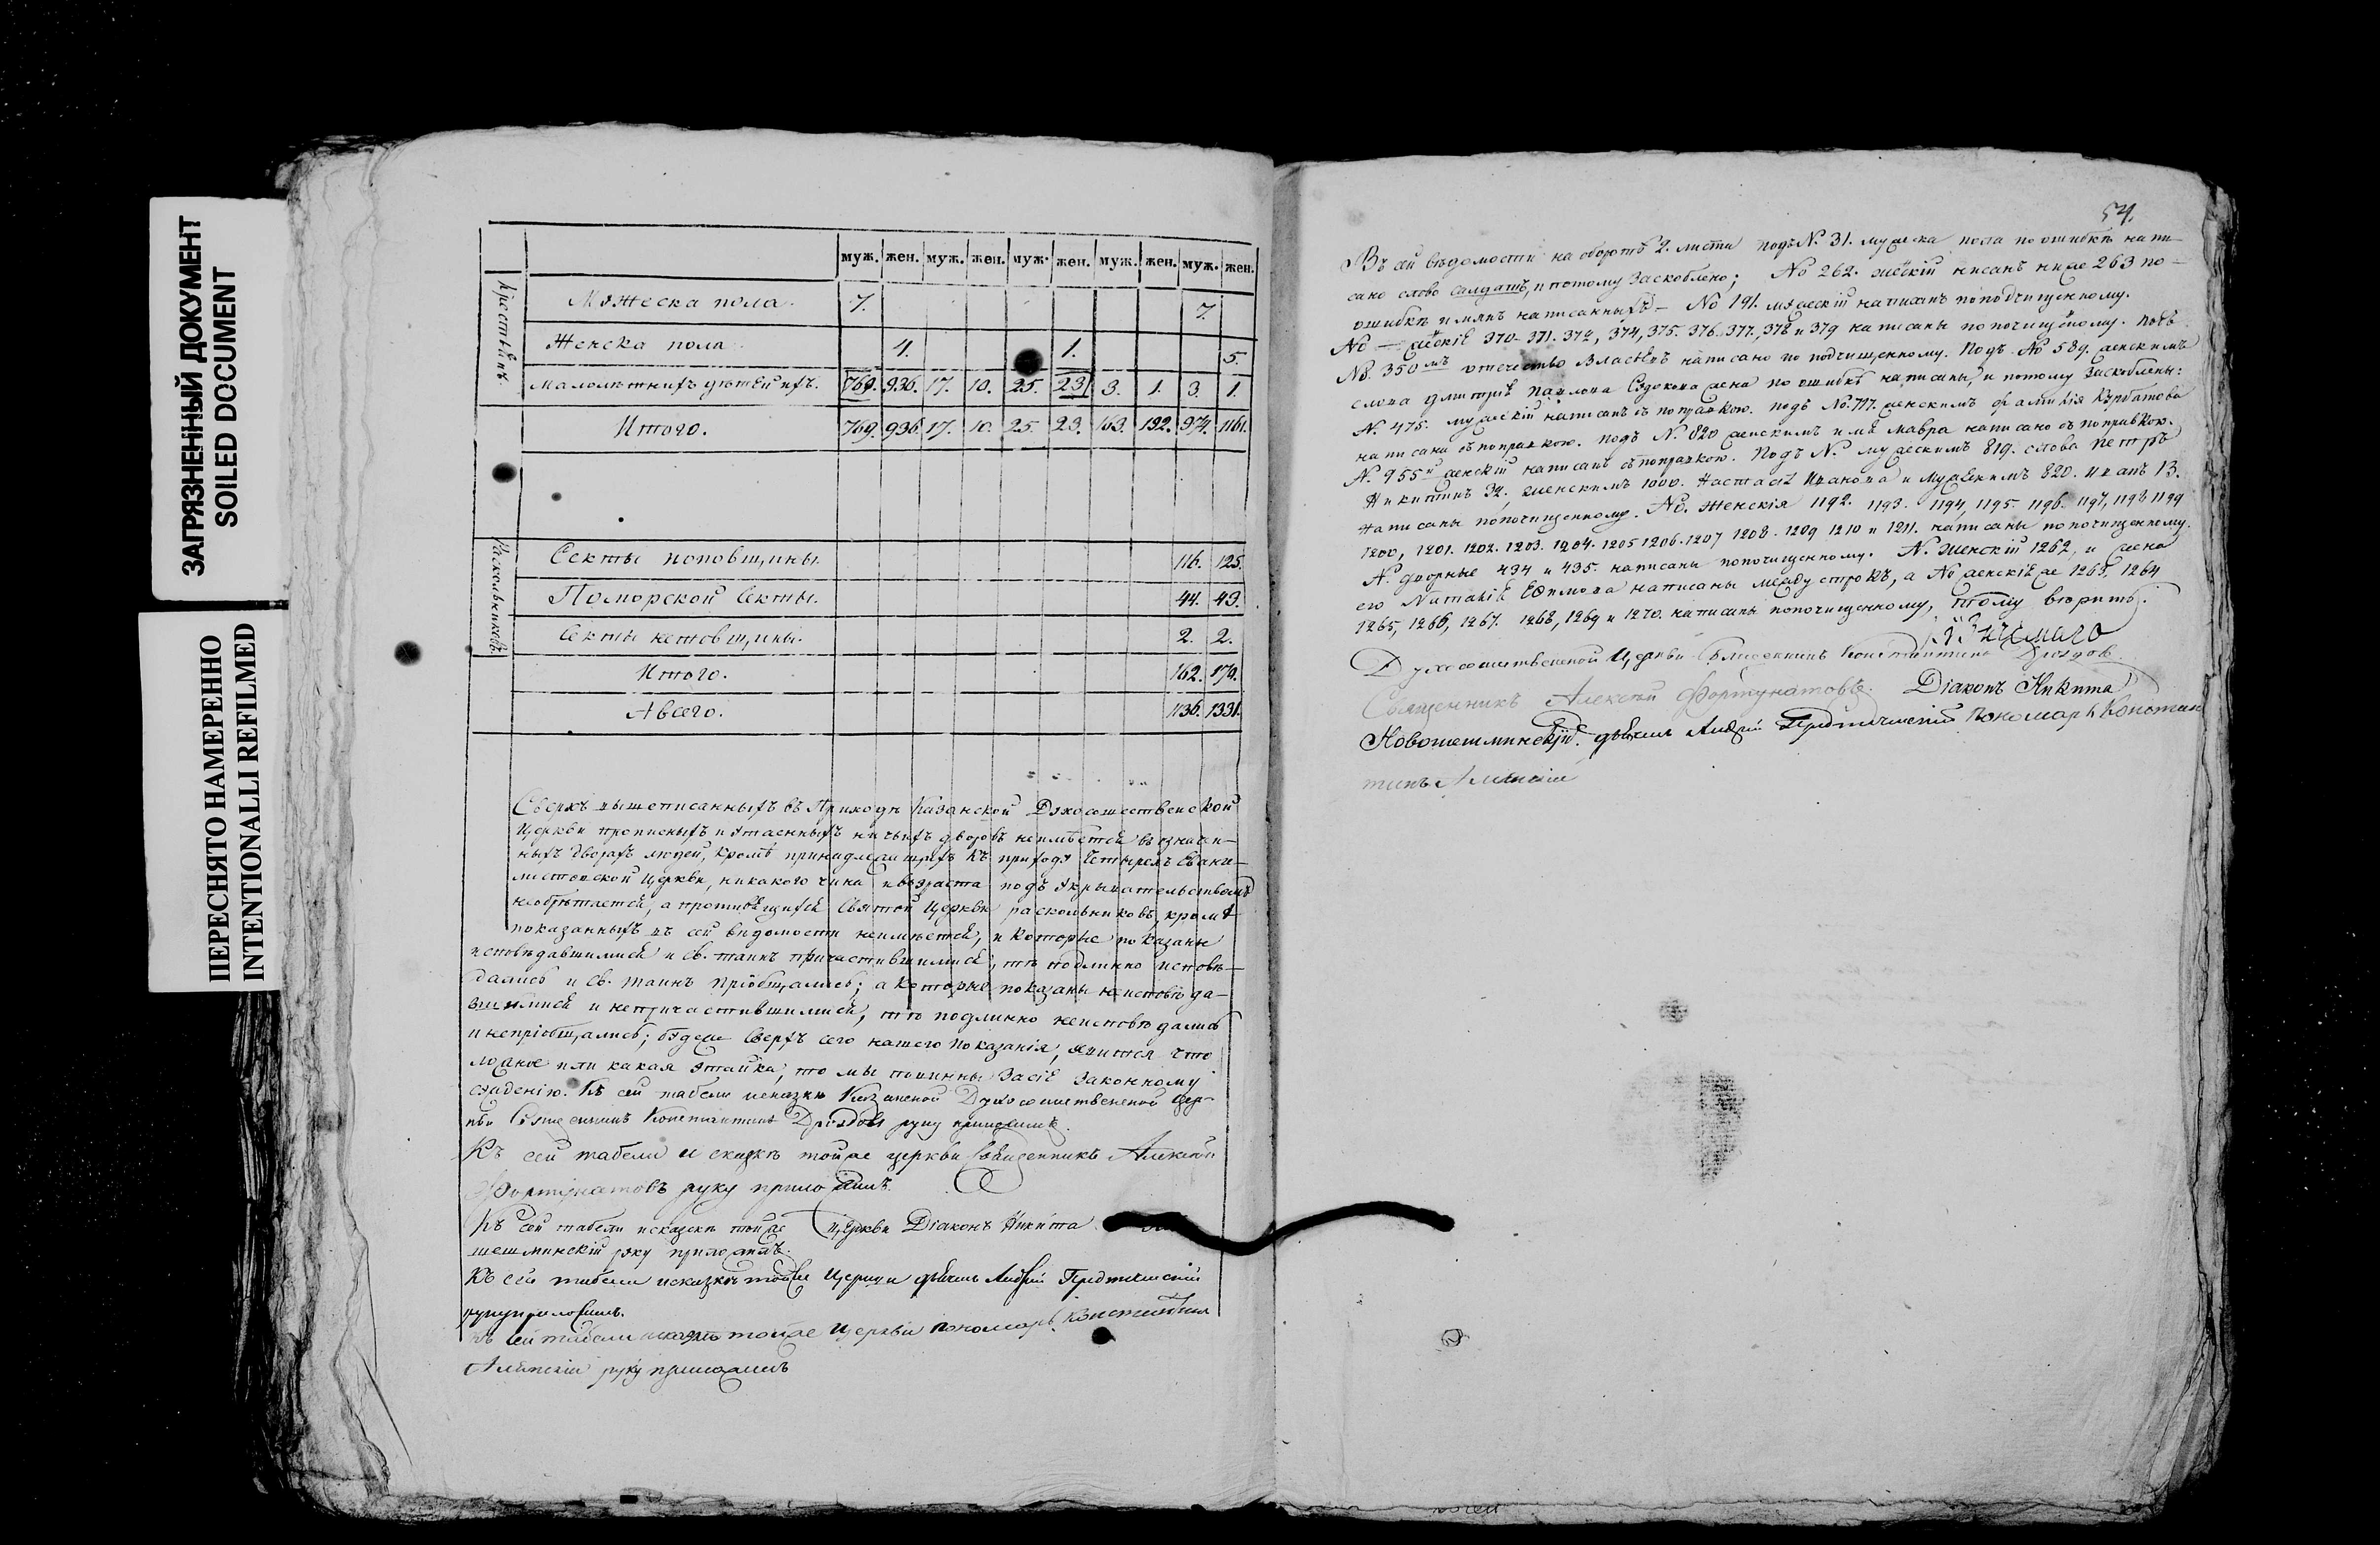 ЗАГРЯЗНЕННЫЙ ДОКУМЕНТ
SOILED DOCUMENT
ПЕРЕСНЯТО НАМЕРЕННО
INTENTIONALLI REFILMED
муж. жен. муж. жен. муж. жен. муж. жен. муж. жен.
Мужеска пола. 7. 7.
Женска пола. 4. 1. 5.
малолѣтнихъ дѣтей ихъ. 769. 936. 17. 10. 25. 23. 3. 1. 3. 1.
Итого. 769. 936. 17. 10. 25. 23. 163. 192. 974. 1161.
Раскольниковъ.
Секты поповщины. 116. 125.
Поморской секты. 44. 43.
Секты нетовщины. 2. 2.
Итого. 162. 170.
А всего. 1136. 1331.
Сверхъ вышеписанныхъ въ Приходѣ Казанской Духосошественской
Церкви прописныхъ и утаенныхъ ничьихъ дворовъ неимѣется въ означен-
ныхъ дворахъ людей, кромѣ принадлежащихъ къ приходу Четырехъ Еванг-
листовской Церкви, никакого чина и возраста подъ укрывательствомъ
необрѣтается, а противящихся Святой Церкви раскольниковъ, кромѣ
показанныхъ въ сей вѣдомости неимѣется, и которые показаны
исповѣдавшимися и Св. таинъ причастившимися, тѣ подлинно исповѣ-
дались и Св. таинъ пріобщались; а которые показаны неисповѣда-
вшимися и непричастившимися, тѣ подлинно неисповѣдались
и непріобщались; будеже сверхъ сего нашего показанія, явится что
ложное или какая утайка, то мы повинны за сіе законному
сужденію. Къ сей табели и сказкѣ Казанской Духосошественской Цер-
кви Священникъ Константинъ Дроздовъ руку приложилъ.
Къ сей табели и сказкѣ тойже церкви Священникъ Алексѣй
Фортунатовъ руку приложилъ.
Къ сей табели и сказкѣ тойже Церкви Діаконъ Никита
шешминскій руку приложилъ.
Къ сей табели и сказкѣ тойже Церкви дьячекъ Андрей Предтеченскій
руку приложилъ.
Къ сей табели и сказкѣ тойже Церкви Пономарь Константинъ
руку приложилъ
54.
Въ сей вѣдомости на оборотѣ 2. листа подъ №. 31. мужеска пола по ошибкѣ напи-
сано слово салдатъ, и потому заскоблено; № 262. женскій писанъ ниже 263 по-
ошибкѣ имянъ написанныхъ - № 191. мужескій написанъ поподчищенному.
№ - женскіе 370. 371. 372, 374, 375. 376. 377, 378 и 379 написаны по почищенному. Подъ
№. 350мъ отечество Власьевъ написано по подчищенному. Подъ № 589. женскимъ
слова Дмитріе Павлова жена по ошибкѣ написаны, и потому заскоблены:
№. 475. мужескій написанъ съ поправкою. подъ №. 717. женскимъ фамилія Курбатова
написана съ поправкою. подъ №. 820 женскимъ имя Мавра написано съ поправкою.
№. 955й женскій написанъ съ поправкою. Подъ №. мужескимъ 819. слова Петръ
Никитинъ 32. женскимъ 1000. Настасья Иванова и мужескимъ 820. Иванъ 13.
написаны попочищенному. №. Женскія 1192. 1193. 1194, 1195. 1196. 1197, 1198 1199
1200, 1201. 1202. 1203. 1204. 1205 1206. 1207 1208. 1209 1210 и 1211. написаны попочищенному.
№. дворные 434 и 435. написаны попочищенному. №. женскій 1262, и жена
его Наталія Ефимова написаны между строкъ, а № женскіе же 1263, 1264
1265, 1266, 1267. 1268, 1269 и 1270. написаны попочищенному, тому вѣрить.
Духосошественской Церкви Священникъ Константинъ Дроздовъ
Священникъ Алексѣй Фортунатовъ. Діаконъ Никита
Новошешминскій. дьячекъ Андрей Предтеченскій Пономарь Констан
тинъ